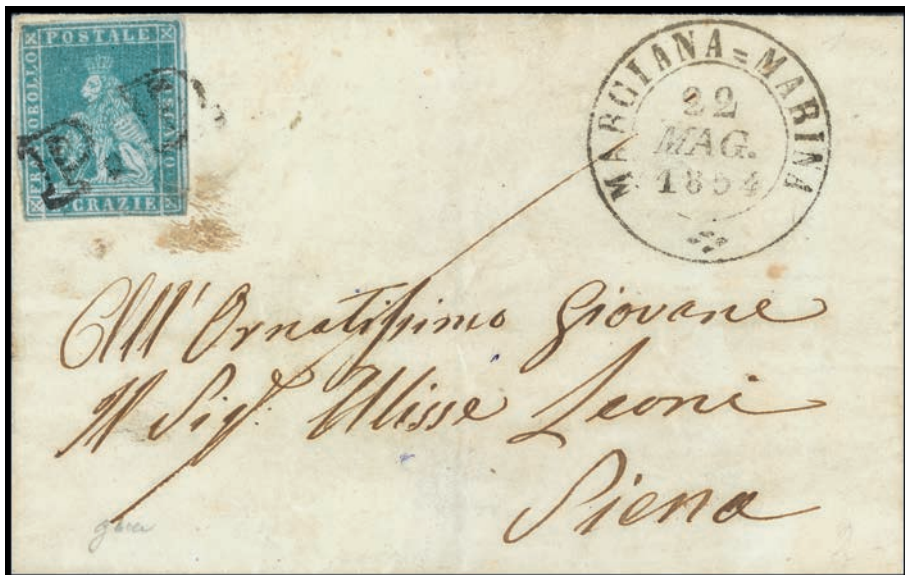 POSTALE
FRANCOBOLLO
TOSCANO
CRAZIE
PD
MARCIANA=MARINA
22
MAG.
1854
All'Ornatissimo Giovane
Il Sig.r Ulisse Leoni
Siena